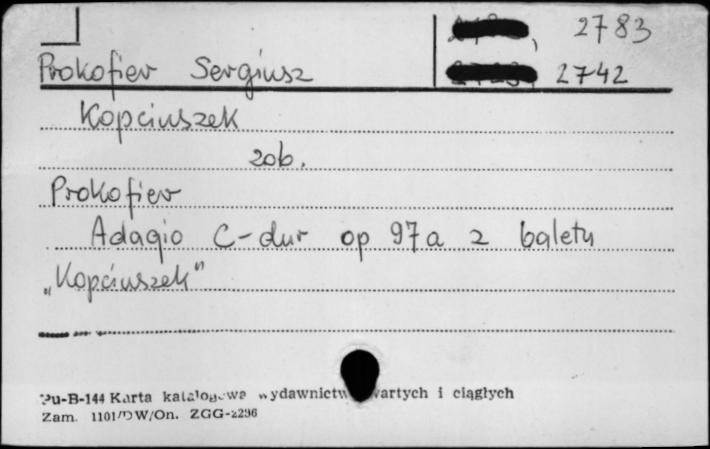 2783
Prokofiev Sergiusz 2742
Kopciuszek
zob.
Prokofiev
Adagio C-dur op 97a z baletu
„Kopciuszek"
Pu-B-144 Karta katalogowa wydawnictw zwartych i ciągłych
Zam. 1101/DW/On. ZGG-2296